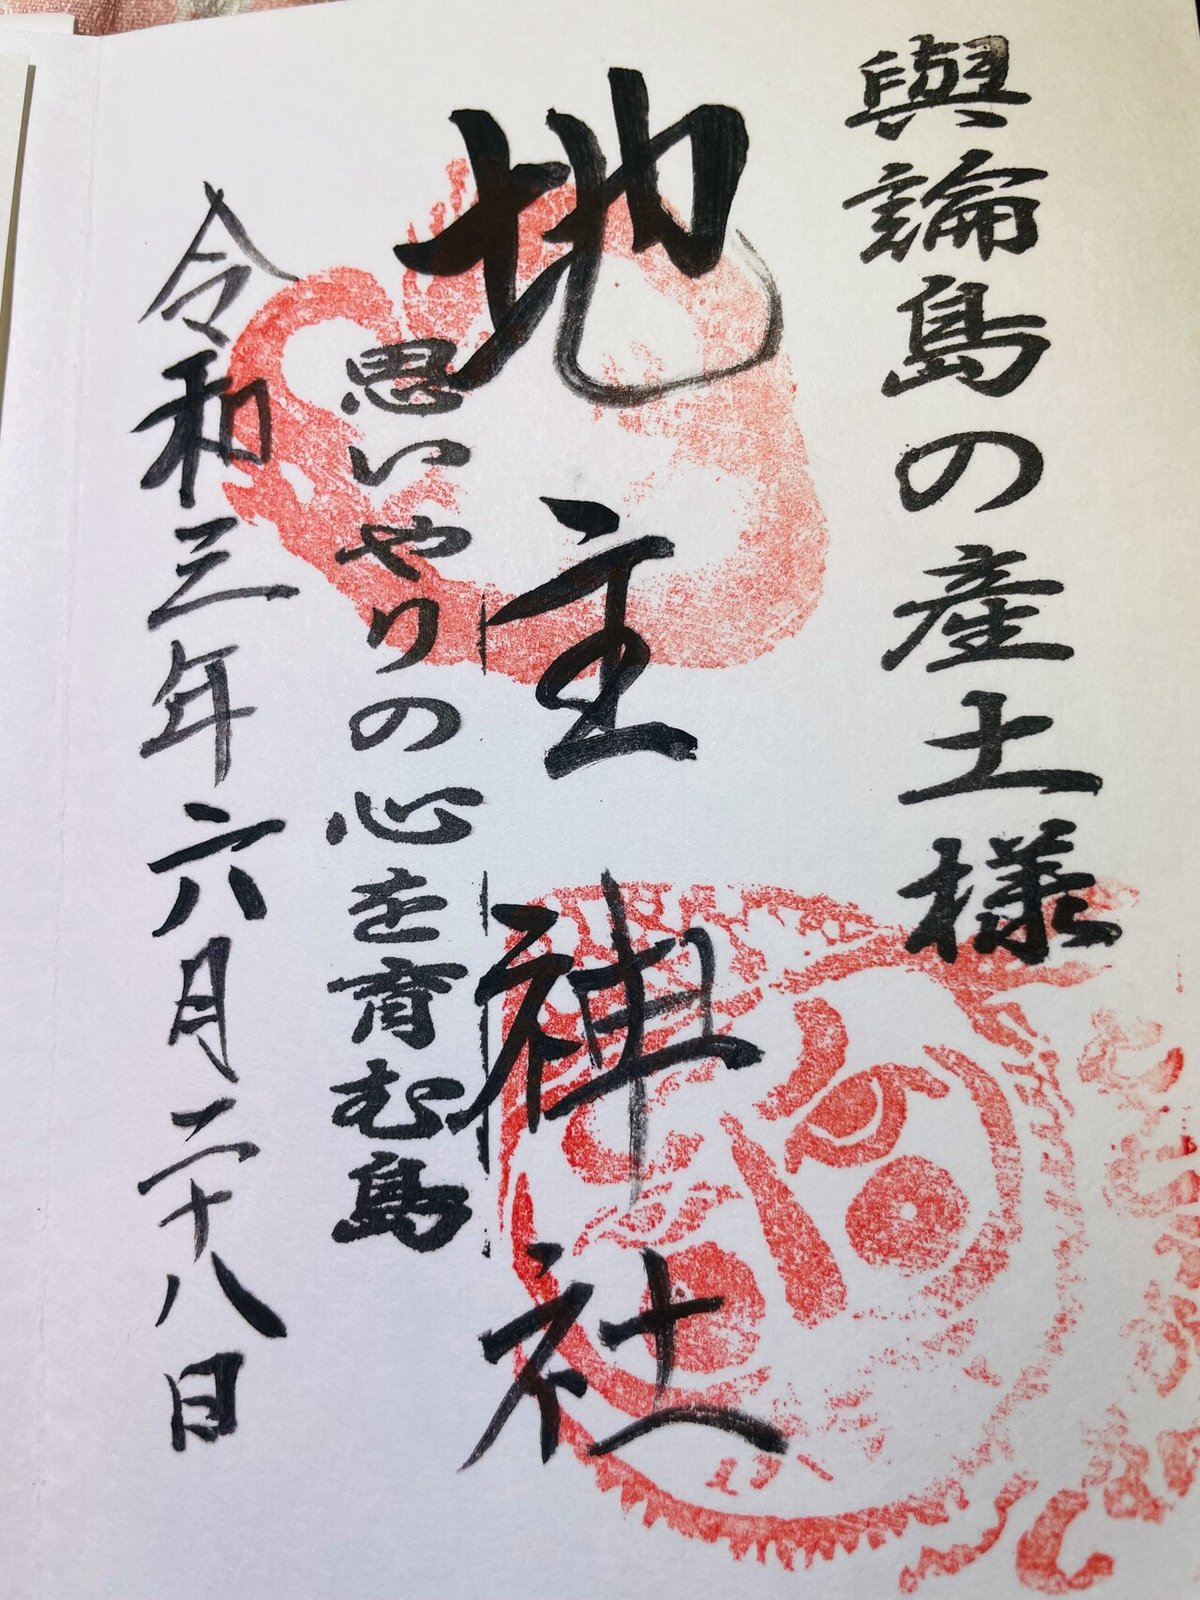 與論島の産土様
地主神社
思いやりの心を育む島
令和三年六月二十八日